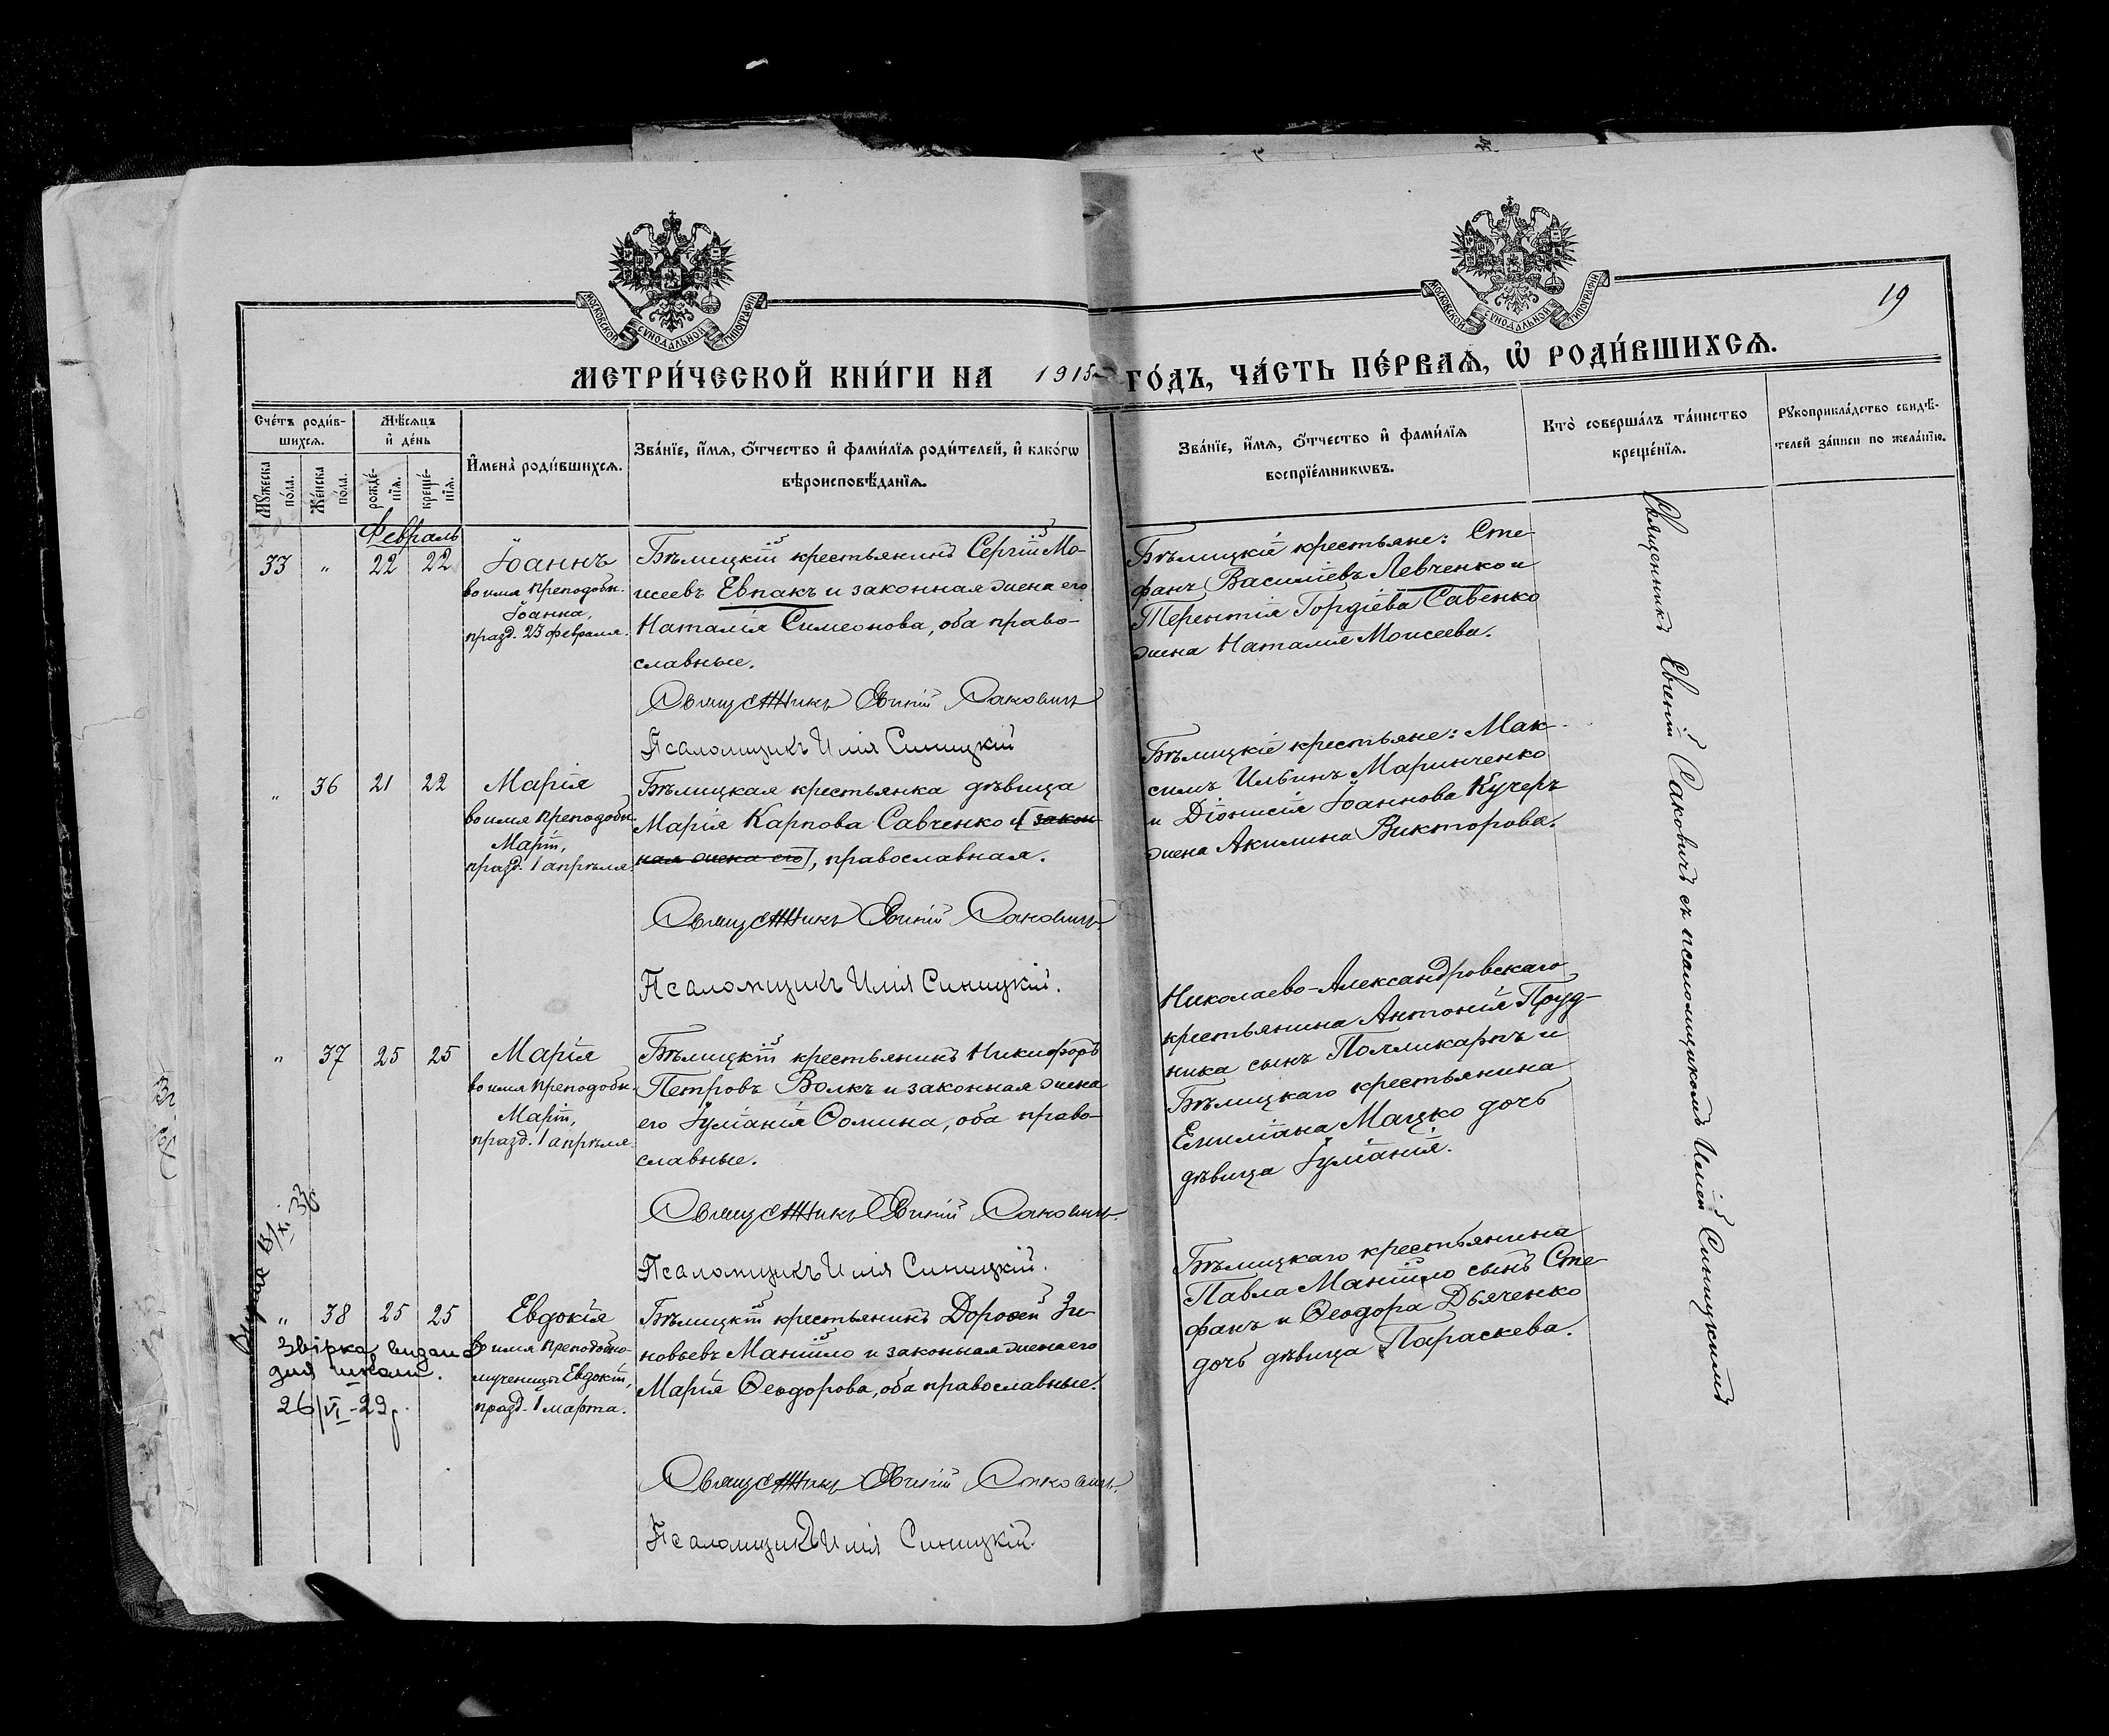 МОСКОВСКОЙ СѴНОДАЛЬНОЙ ТИПОГРАФІИ
МОСКОВСКОЙ СѴНОДАЛЬНОЙ ТИПОГРАФІИ
19
МЕТРИ́ЧЕСКОЙ КНИ́ГИ НА 1915 ГО́ДЪ, ЧА́СТЬ ПЕ́РВАѦ, Ѡ҆ РОДИ́ВШИХСѦ.
Сче́тъ роди́в-
шихсѧ.
Мѣ́сѧцъ
и҆ де́нь
Мꙋ́жеска
по́ла.
Же́нска
по́ла.
рожде́-
нїѧ.
креще́-
нїѧ.
И҆мена̀ роди́вшихсѧ.
Зва́нїе, и҆́мѧ, ѻ҆́тчество и҆ фами́лїѧ роди́телей, и҆ како́гѡ
вѣроисповѣ́данїѧ.
Зва́нїе, и҆́мѧ, ѻ҆́тчество и҆ фами́лїѧ
воспрїе́мникѡвъ.
Кто̀ соверша́лъ та́инство
креще́нїѧ.
Рꙋкоприкла́дство свидѣ́-
телей за́писи по жела́нїю.
Февраль
33 " 22 22
Іоаннъ
во имя преподобн.
Іоанна,
празд. 23 февраля.
Бѣлицкій крестьянинъ Сергій Мо-
исеевъ Евпакъ и законная жена его
Наталія Симеонова, оба право-
славные.
Священникъ Евгеній Саковичъ
Псаломщикъ Илія Синицкій
Бѣлицкіе крестьяне: Сте-
фанъ Василіевъ Левченко и
Терентія Гордіева Савенко
жена Наталія Моисеева.
" 36 21 22
Марія
во имя преподобн.
Маріи,
празд. 1 апрѣля.
Бѣлицкая крестьянка дѣвица
Марія Карпова Савченко и [закон-
ная жена его], православная.
Священникъ Евгеній Саковичъ
Псаломщикъ Илія Синицкій.
Бѣлицкіе крестьяне: Мак-
симъ Ильинъ Маринченко
и Діонисія Іоаннова Кучеръ
жена Акилина Викторова.
" 37 25 25
Марія
во имя преподобн.
Маріи,
празд. 1 апрѣля.
Бѣлицкій крестьянинъ Никифоръ
Петровъ Волкъ и законная жена
его Іуліанія Ѳомина, оба право-
славные.
Священникъ Евгеній Саковичъ.
Псаломщикъ Илія Синицкій.
Николаево-Александровскаго
крестьянина Антонія Пруд-
ника сынъ Поликарпъ и
Бѣлицкаго крестьянина
Емиліана Мацко дочь
дѣвица Іуліанія.
" 38 25 25
Звірка видана
для школи.
26/VI-29 р.
Евдокія
во имя преподобно-
мученицы Евдокіи,
празд. 1 марта.
Бѣлицкій крестьянинъ Дороѳей Зи-
новьевъ Маншло и законная жена его
Марія Ѳеодорова, оба православные.
Священникъ Евгеній Саковичъ.
Псаломщикъ Илія Синицкій
Бѣлицкаго крестьянина
Павла Маншло сынъ Сте-
фанъ и Ѳеодора Дьяченко
дочь дѣвица Параскева.
Священникъ Евгеній Саковичъ съ псаломщикомъ Иліей Синицкимъ